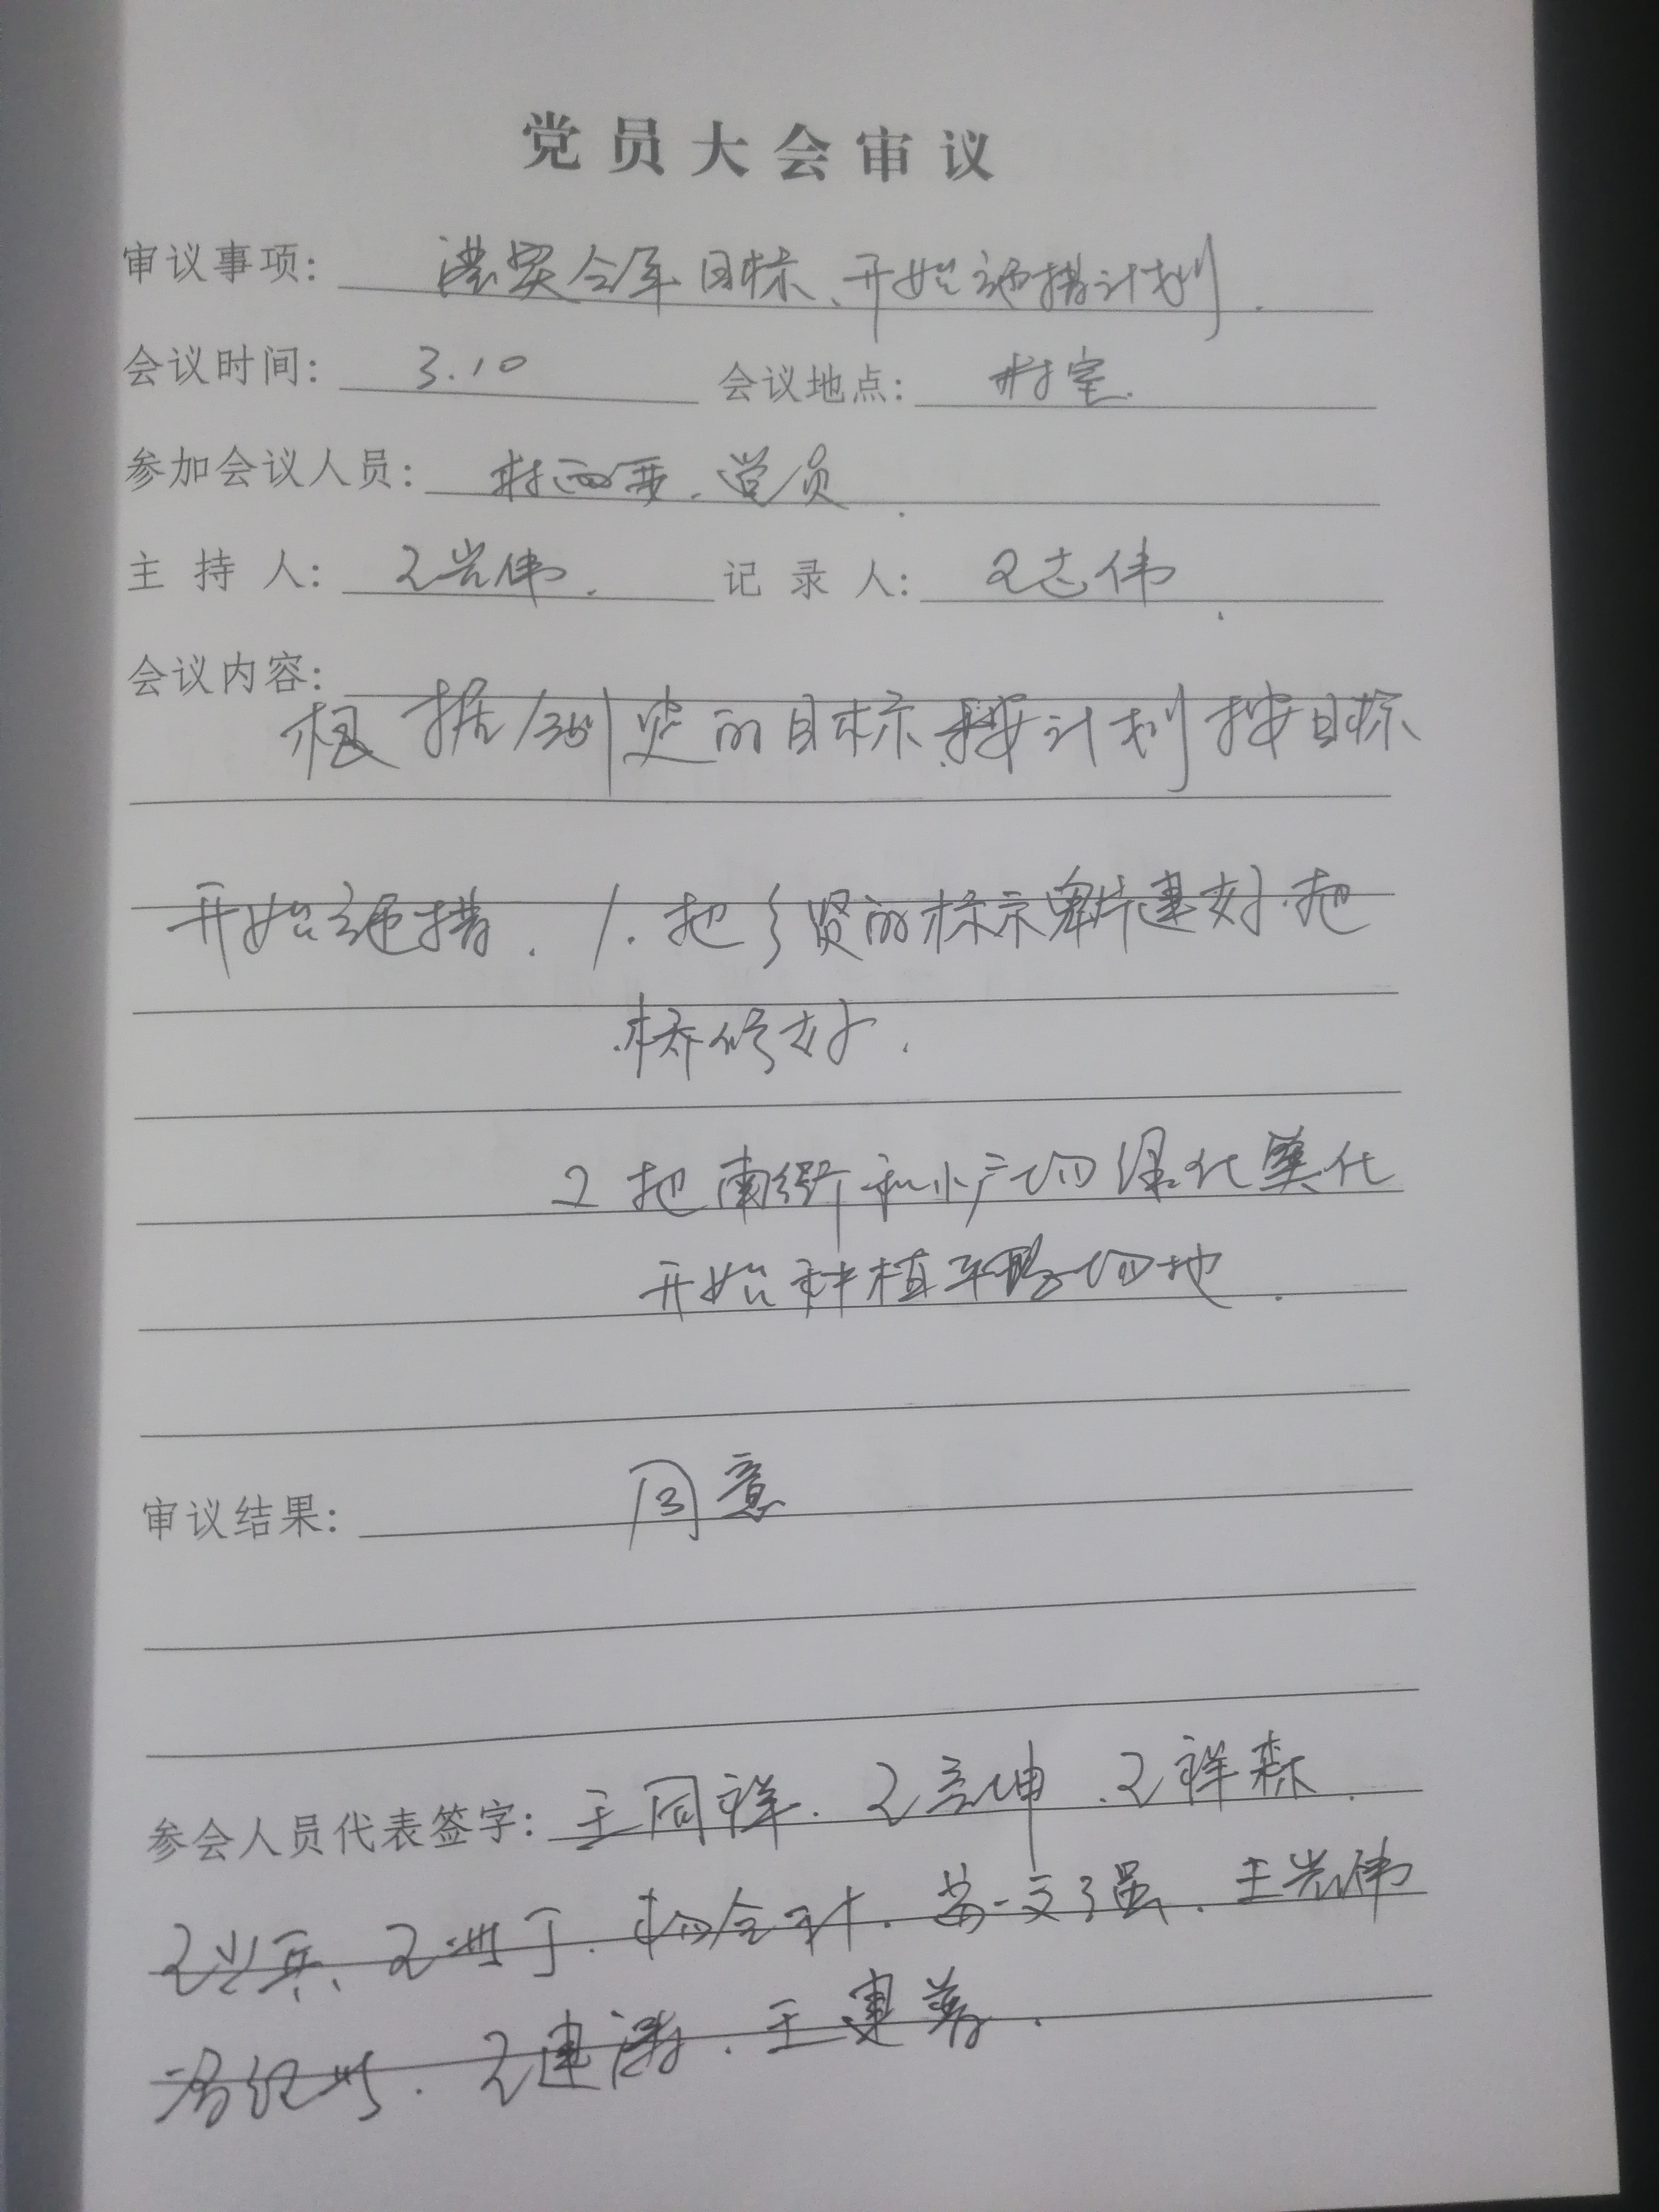 党员大会审议
审议事项: 落实今年目标、开始施措计划.
会议时间: 3.10 会议地点: 村室.
参加会议人员: 村两委.党员.
主持人: 王兴伟. 记录人: 王志伟.
会议内容:
根据制定的目标.按计划按目标
开始施措. 1.把乡贤的标示牌建好.把
桥修好.
2 把南街和小广场绿化美化
开始种植平整场地.
审议结果: 同意
参会人员代表签字: 王同祥. 王立坤.王祥森.
王兴兵、王洪丁. 王兴伟
王建涛.王建